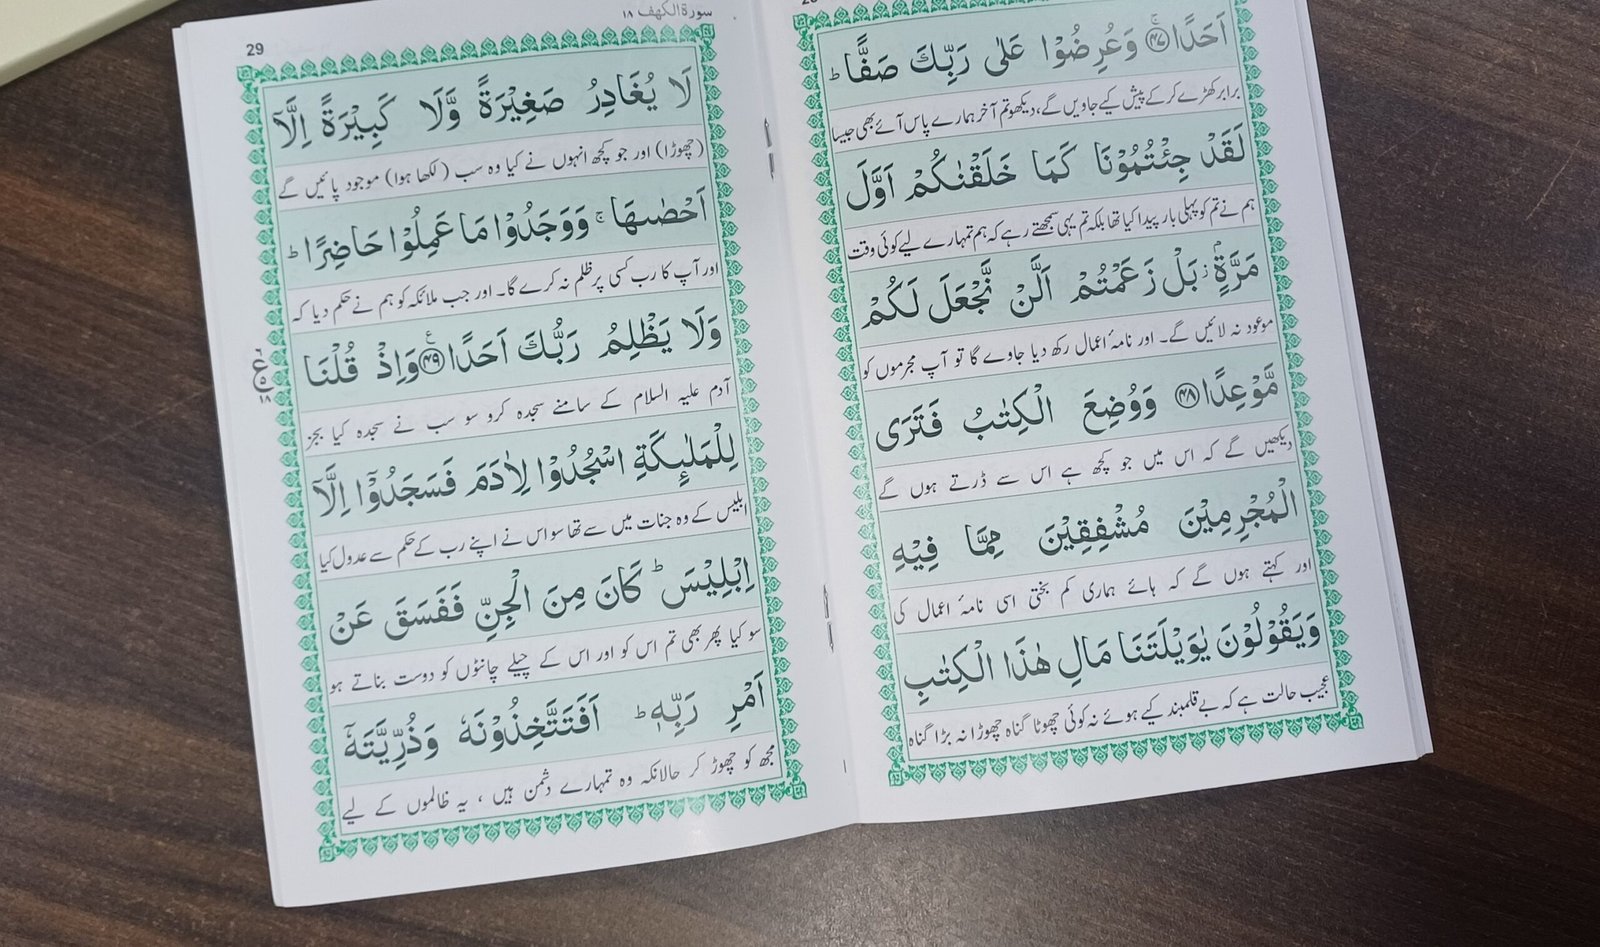 اَحَدًا ﴿۴۷﴾ وَعُرِضُوْا عَلٰى رَبِّكَ صَفًّا ؕ
برابر کھڑے کر کے پیش کیے جاویں گے، دیکھو تم آخر ہمارے پاس آئے بھی جیسا
لَقَدْ جِئْتُمُوْنَا كَمَا خَلَقْنٰكُمْ اَوَّلَ
ہم نے تم کو پہلی بار پیدا کیا تھا بلکہ تم یہی سمجھتے رہے کہ ہم تمہارے لیے کوئی وقت
مَرَّةٍۭ ؗ بَلْ زَعَمْتُمْ اَلَّنْ نَّجْعَلَ لَكُمْ
موعود نہ لائیں گے۔ اور نامۂ اعمال رکھ دیا جاوے گا تو آپ مجرموں کو
مَّوْعِدًا ﴿۴۸﴾ وَوُضِعَ الْكِتٰبُ فَتَرَى
دیکھیں گے کہ اس میں جو کچھ ہے اس سے ڈرتے ہوں گے
الْمُجْرِمِيْنَ مُشْفِقِيْنَ مِمَّا فِيْهِ
اور کہتے ہوں گے کہ ہائے ہماری کم بختی اسی نامۂ اعمال کی
وَيَقُوْلُوْنَ يٰوَيْلَتَنَا مَالِ هٰذَا الْكِتٰبِ
عجیب حالت ہے کہ بے قلمبند کیے ہوئے نہ کوئی چھوٹا گناہ چھوڑا نہ بڑا گناہ
سورة الكهف ۱۸
29
لَا يُغَادِرُ صَغِيْرَةً وَّلَا كَبِيْرَةً اِلَّاۤ
(چھوڑا) اور جو کچھ انہوں نے کیا وہ سب (لکھا ہوا) موجود پائیں گے
اَحْصٰىهَا ۚ وَوَجَدُوْا مَا عَمِلُوْا حَاضِرًا ؕ
اور آپ کا رب کسی پر ظلم نہ کرے گا۔ اور جب ملائکہ کو ہم نے حکم دیا کہ
وَلَا يَظْلِمُ رَبُّكَ اَحَدًا ﴿۴۹﴾ وَاِذْ قُلْنَا
ع ۱۸
آدم علیہ السلام کے سامنے سجدہ کرو سو سب نے سجدہ کیا بجز
لِلْمَلٰٓئِكَةِ اسْجُدُوْا لِاٰدَمَ فَسَجَدُوْۤا اِلَّاۤ
ابلیس کے وہ جنات میں سے تھا سو اس نے اپنے رب کے حکم سے عدول کیا
اِبْلِيْسَ ؕ كَانَ مِنَ الْجِنِّ فَفَسَقَ عَنْ
سو کیا پھر بھی تم اس کو اور اس کے چیلے چانٹوں کو دوست بناتے ہو
اَمْرِ رَبِّهٖ ؕ اَفَتَتَّخِذُوْنَهٗ وَذُرِّيَّتَهٗۤ
مجھ کو چھوڑ کر حالانکہ وہ تمہارے دشمن ہیں ، یہ ظالموں کے لیے